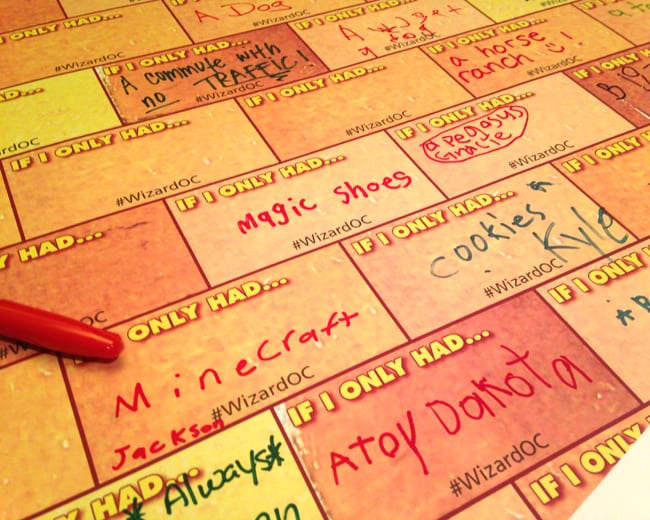 A Dog
#WizardOC
IF I ONLY HAD...
#WizardOC
IF I ONLY HAD...
A commute with
no TRAFFIC!
#WizardOC
IF I ONLY HAD...
#WizardOC
IF I ONLY HAD...
a horse
ranch !
#WizardOC
IF I ONLY HAD...
#WizardOC
IF I ONLY HAD...
#WizardOC
IF I ONLY HAD...
a Pegasus
Gracie
#WizardOC
IF I ONLY HAD...
#WizardOC
IF I ONLY HAD...
Magic Shoes
#WizardOC
IF I ONLY HAD...
cookies
Kyle
#WizardOC
HAD...
ONLY HAD...
Minecraft
#WizardOC
Jackson
IF I ONLY HAD...
A Toy Dakota
#WizardOC
IF I ONLY
HAD...
*Always*
IF I ONLY